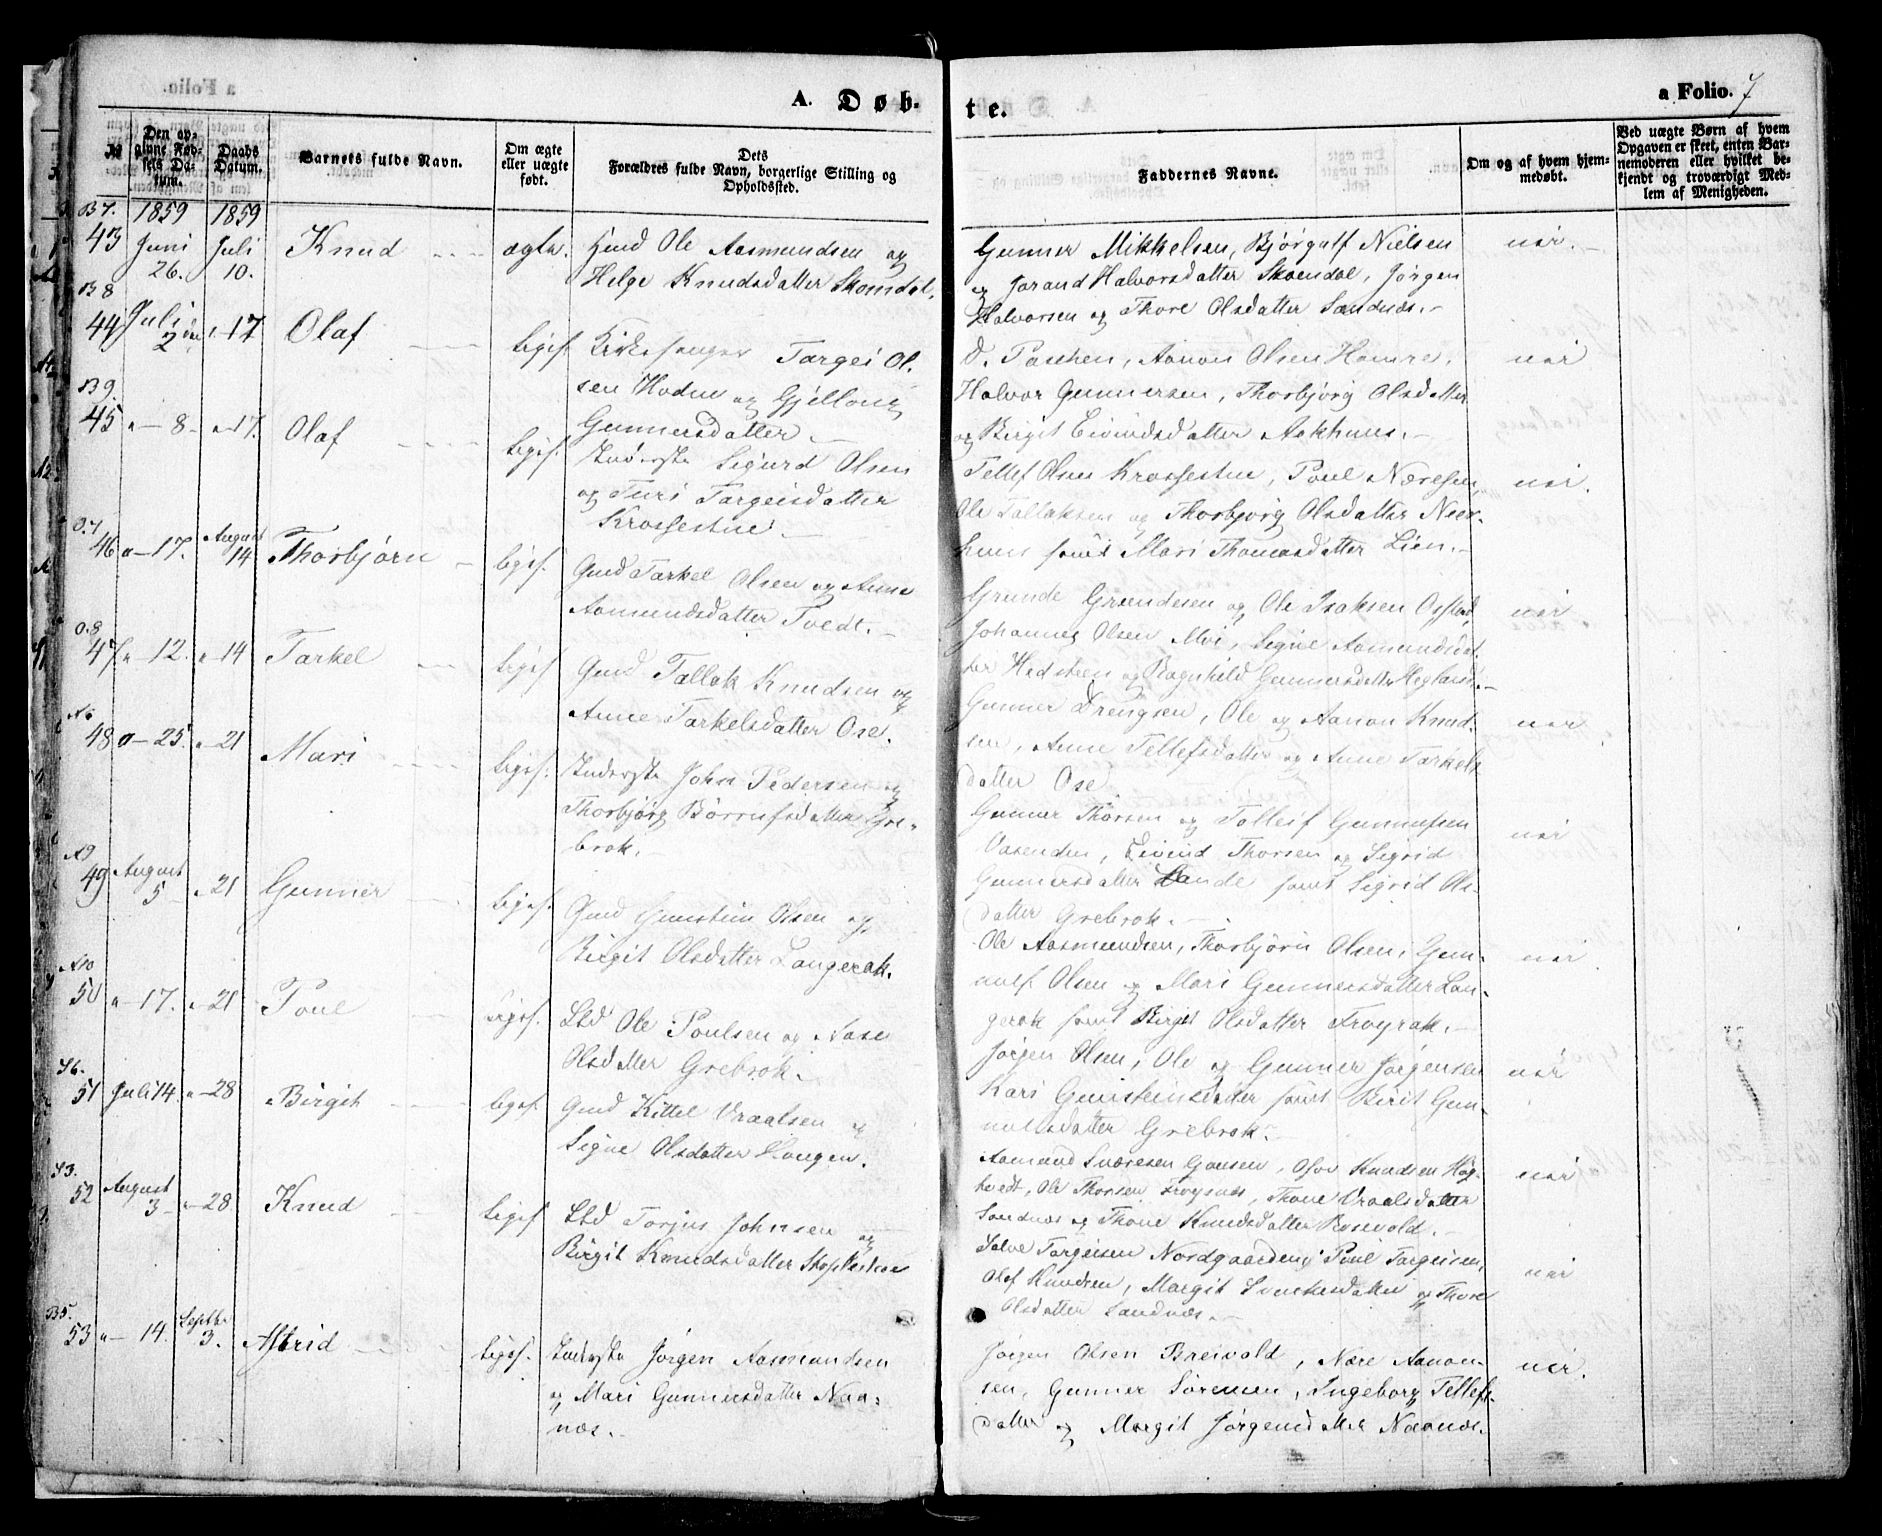 A. Døb-
te.
a Folio. 7
№
Den op-
givne Fød-
sels Da-
tum.
Daabs
Datum.
Barnets fulde Navn.
Om ægte
eller uægte
født.
Dets
Forældres fulde Navn, borgerlige Stilling og
Opholdssted.
Faddernes Navne.
Om og af hvem hjem-
medøbt.
Ved uægte Børn af hvem
Opgaven er skeet, enten Bar-
nemoderen eller hvilket be-
kjendt og troværdigt Med-
lem af Menigheden.
B7. 1859 1859
43 Juni 26. Juli 10. Knud ægte. Gmd Ole Aasmundsen og
Helge Knudsdatter Skomdal.
Gunner Mikkelsen, Bjørgulf Nielsen
og Jorand Halvorsdatter Skomdal, Jørgen
Halvorsen og Thore Olsdatter Sandnæs.
nei.
B8
44 Juli 2den 17 Olaf liges. Kirkesanger Targei Ol-
sen Hodne og Gjellaug
Gunnersdatter.
O. Paschen, Aanon Olsen Homre,
Halvor Gunnersen, Thorbjørg Olsdatter
og Birgit Eivindsdatter Aakhuus.
nei
B9.
45 8 17. Olaf liges. Inderste Sigurd Olsen
og Turi Targeisdatter
Krossestue.
Tellef Olsen Krossestue, Poul Næresen,
Ole Tallaksen og Thorbjørg Olsdatter
huus samt Mari Thomasdatter Lien.
nei.
O.7
46 17. August 14 Thorbjørn ligs. Gmd Tarkel Olsen og Anne
Aamundsdatter Tvedt.
Grunde Grundesen og Ole Isaksen Ofstad,
Johannes Olsen Moi, Signe Aamundsdat-
ter og Ragnhild Gunnersdatter Hegland.
nei
O.8
47 12. 14 Tarkel ligs. Gmd Tallak Knudsen og
Anne Tarkelsdatter Ose.
Gunner Drengsen, Ole og Aanon Knud-
sen, Anne Tellefsdatter og Anne Tarkels-
datter Ose
nei
48 25. 21 Mari ligs. Inderste John Pedersen og
Thorbjørg Børrufsdatter Gre-
brok.
Gunner Thorsen og Tolleif Gunnufsen
Oasenden, Eivind Thorsen og Sigrid
Gunnersdatter Lande samt Sigrid Ols-
datter Grebrok.
nei
A9
49 August 5 21 Gunner ligs. Gmd Gunstein Olsen og
Birgit Olsdatter Langerak.
Ole Aasmundsen, Thorbjørn Olsen, Gun-
nulf Olsen og Mari Gunnersdatter Lan-
gerak samt Birgit Olsdatter Frøyrak.
nei
A10
50 17. 21 Poul ligs. Lbd Ole Poulsen og Aase
Olsdatter Grebrok.
Jørgen Olsen, Ole og Gunner Jørgensen
Kari Gunsteinsdatter samt Berit Gun-
nulsdatter Grebrok.
nei
Y6.
51 Juli 14. 28 Birgit ligs. Gmd Kittel Vraalsen og
Signe Olsdatter Haugen.
Aamund Sværesen Gousen, Olov Knudsen Høg-
tvedt, Ole Thorsen Frøysnæs, Thone Vraalsdatter
Sandnæs og Thone Knudsdatter Rosevold.
nei
Y3.
52 August 3 28 Knud ligs Lbd Torjus Johnsen og
Birgit Knudsdatter
Salve Targeisen Nordgaarden, Poul Targeisen,
Olaf Knudsen, Margit og Thore
Olsdatter Sandnæs.
nei
B5.
53 14. Septbr 3. Astrid ligs. Inderste Jørgen Aasmundsen
og Mari Gunnersdatter Naa-
næs.
Jørgen Olsen Breivold, Nære Aanon-
sen, Gunner Sørensen, Ingeborg Tellefs-
datter og Margit Jørgensdatter Naanæs.
nei.